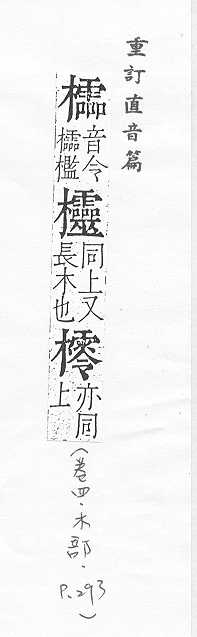 重訂直音篇
櫺
音令
櫺檻
欞
同上又
長木也
㯪
亦同
上
(卷四・木部・P.293)